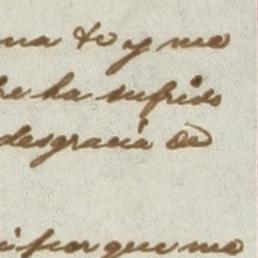 na to y me
re ha sufrido
desgracia de
i porque me